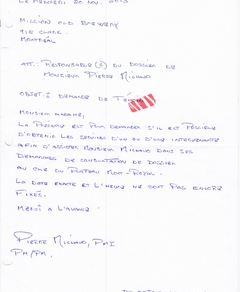 LE MERCREDI 20 NOV. 2013
MISSION OLD BREWERY
MONTRÉAL
ATT.: RESPONSABLE(S) DU DOSSIER DE
MONSIEUR PIERRE
OBJET: DEMANDE DE
MONSIEUR, MADAME,
LA PRÉSENTE EST POUR DEMANDER S'IL EST POSSIBLE
D'OBTENIR LES SERVICES D'UN OU D'UNE INTERVENANTE
AFIN D'ASSISTER MONSIEUR DANS SES
DEMANDES DE CONSULTATION DE DOSSIER
AU CLSC DU PLATEAU MONT-ROYAL.
LA DATE EXACTE ET L'HEURE NE SONT PAS ENCORE
FIXÉS.
MERCI À L'AVANCE!
PIERRE
PM/PM.